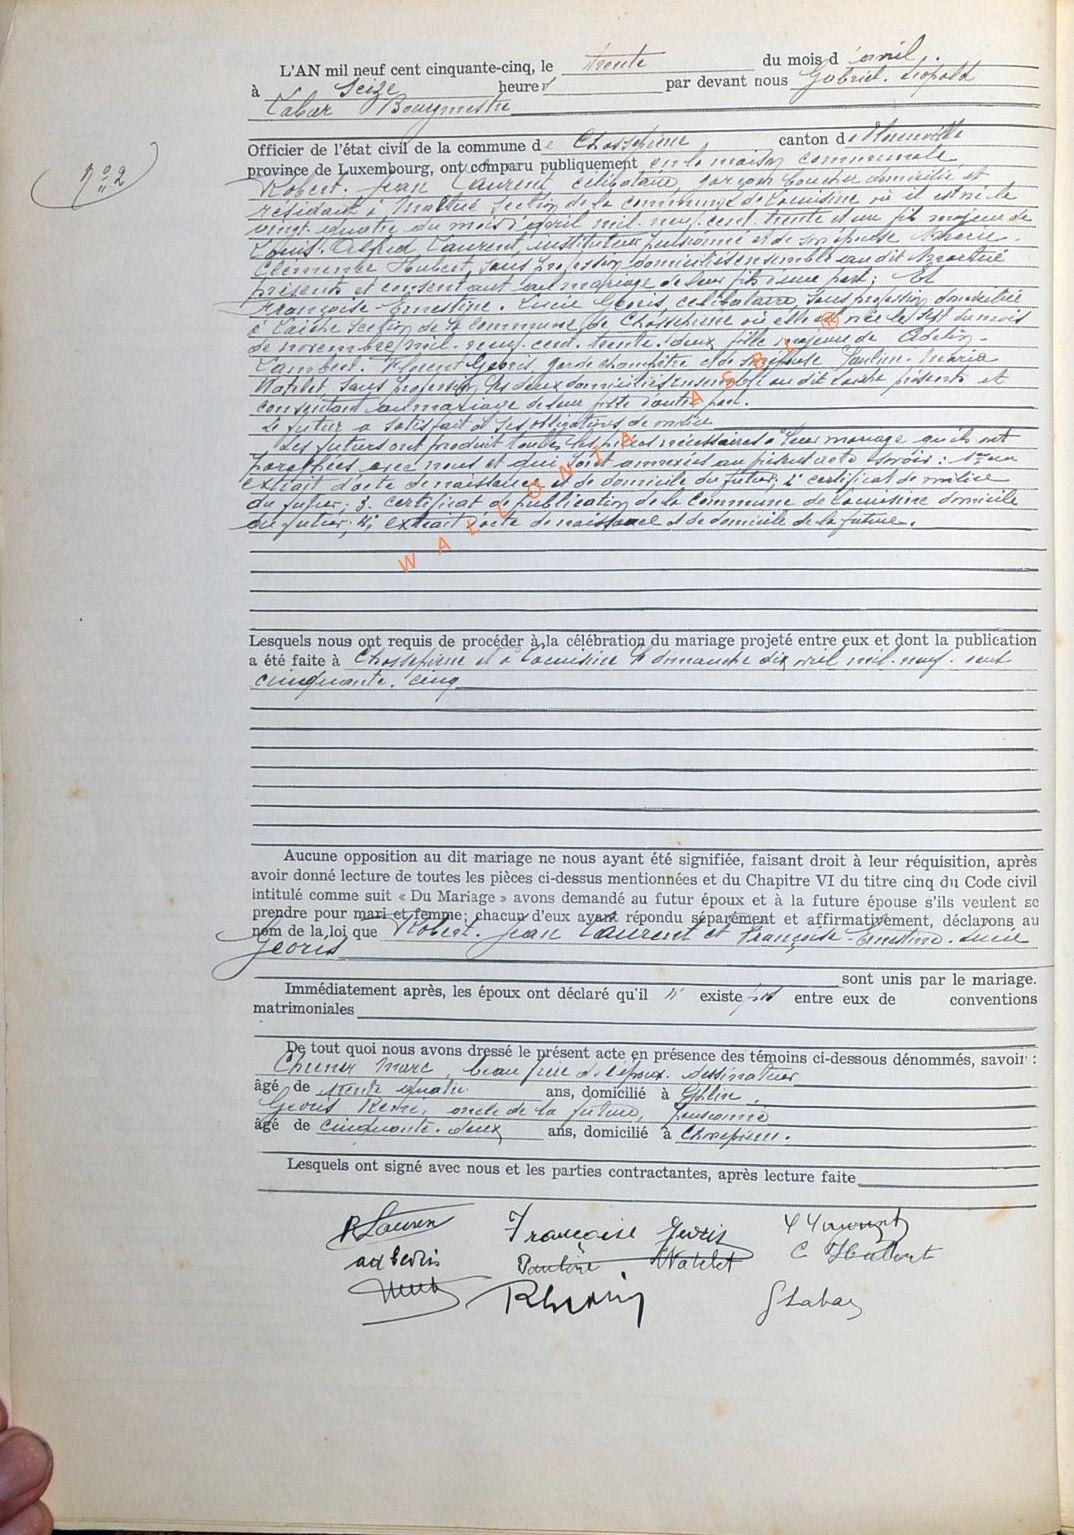 L'AN mil neuf cent cinquante-cinq, le trente du mois d'avril.
à Seize heures par devant nous Gabriel. Léopold
Labar Bourgmestre
Officier de l'état civil de la commune de Chassepierre canton de Florenville
province de Luxembourg, ont comparu publiquement en la maison communale
N° 2
Robert. Jean Laurent, célibataire, garçon boucher domicilié et
résidant à Martué Section de la commune de Lacuisine où il est né le
vingt quatre du mois d'avril mil. neuf. cent. trente et un fils majeur de
Louis. Alfred Laurent, instituteur pensionné et de son épouse Marie-
Clémence Hubert, sans profession, domiciliés ensemble au dit Martué
présents et consentant au mariage de leur fils d'une part; Et
Françoise-Ernestine. Lucie Georis, célibataire, sans profession domiciliée
à Laiche Section de la commune de Chassepierre où elle est née le du mois
de novembre mil. neuf. cent. trente. deux fille majeure de Adelin-
Lambert. Florent Georis, garde champêtre et de son épouse Pauline-Maria
Watelet, sans profession, les deux domiciliés ensemble au dit Laiche présents et
consentant au mariage de leur fille d'autre part.
Le futur a satisfait à ses obligations de milice
Les futurs ont produit toutes les pièces nécessaires à leur mariage qu'ils ont
paraphées avec nous et qui sont annexées au présent acte savoir: 1° un
extrait d'acte de naissance et de domicile du futur; 2° certificat de milice
du futur; 3. certificat de publication de la Commune de Lacuisine domicile
du futur; 4; extrait d'acte de naissance et de domicile de la future.
WALLONIA ASBL ®
Lesquels nous ont requis de procéder à la célébration du mariage projeté entre eux et dont la publication
a été faite à Chassepierre et à Lacuisine le dimanche dix avril mil. neuf. cent
cinquante. cinq
Aucune opposition au dit mariage ne nous ayant été signifiée, faisant droit à leur réquisition, après
avoir donné lecture de toutes les pièces ci-dessus mentionnées et du Chapitre VI du titre cinq du Code civil
intitulé comme suit « Du Mariage » avons demandé au futur époux et à la future épouse s'ils veulent se
prendre pour mari et femme; chacun d'eux ayant répondu séparément et affirmativement, déclarons au
nom de la loi que Robert. Jean Laurent et Françoise-Ernestine. Lucie
Georis
sont unis par le mariage.
Immédiatement après, les époux ont déclaré qu'il n' existe pas entre eux de conventions
matrimoniales
De tout quoi nous avons dressé le présent acte en présence des témoins ci-dessous dénommés, savoir :
Marc, beau frère de l'époux. dessinateur
âgé de trente quatre ans, domicilié à Ghlin.
Georis René, oncle de la future, pensionné
âgé de cinquante. deux ans, domicilié à Chassepierre.
Lesquels ont signé avec nous et les parties contractantes, après lecture faite
R Laurent Françoise Georis
ad Georis Pauline Watelet C Hubert
GLabar